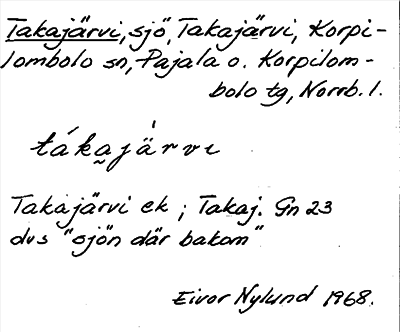 Takajärvi, sjö, Takajärvi, Korpi-
lombolo sn, Pajala o. Korpilom-
bolo tg, Norrb. l.
táka̬jä̍rvɩ
Takajärvi ek ; Takaj. Gn 23
dvs "sjön där bakom"
Eivor Nylund 1968.